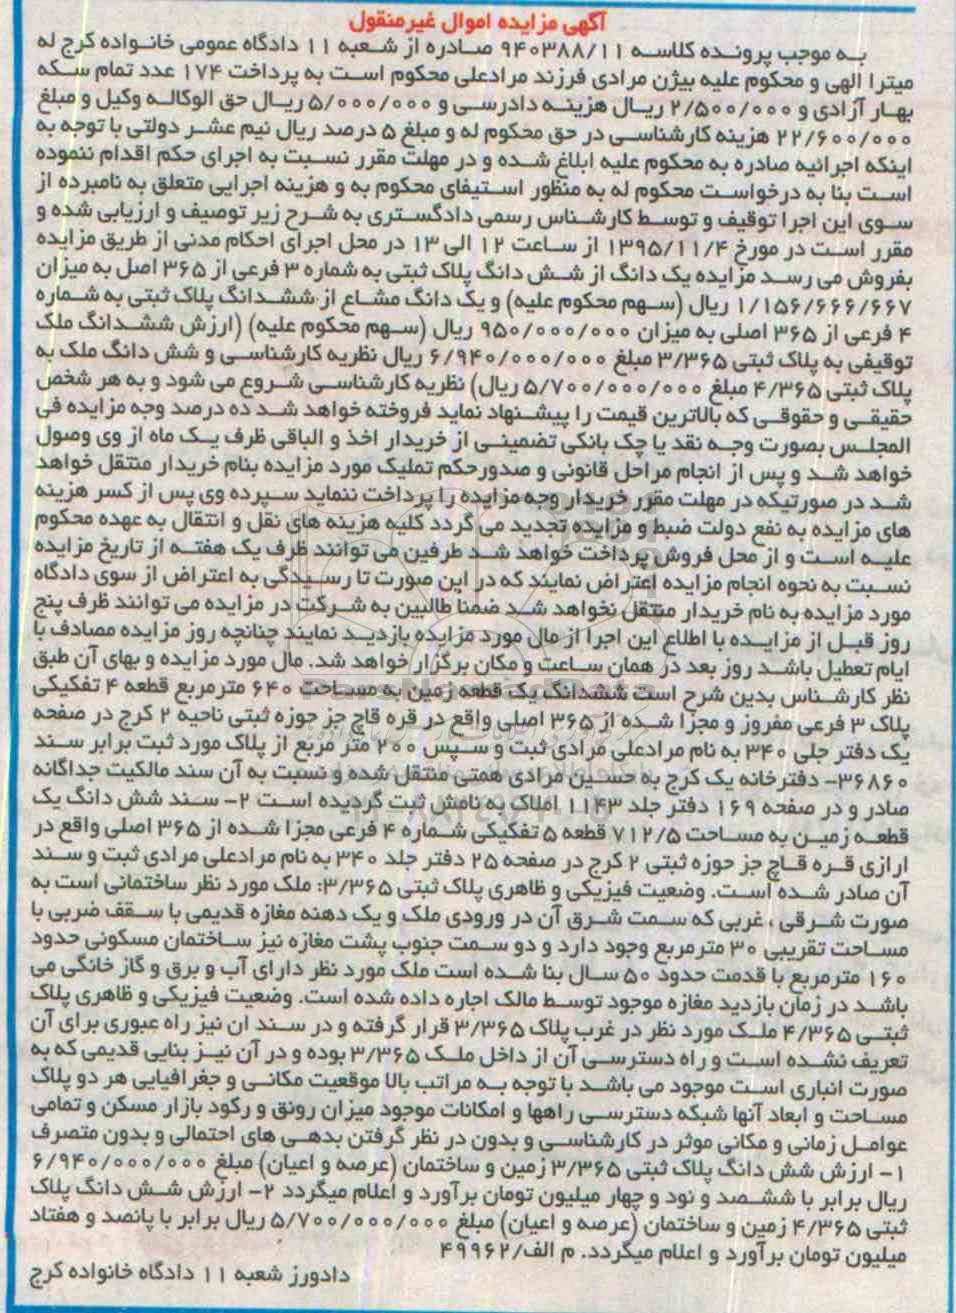 آگهی مزایده اموال غیرمنقول
به موجب پرونده کلاسه ۹۴۰۳۸۸/۱۱ صادره از شعبه ۱۱ دادگاه عمومی خانواده کرج له
میترا الهی و محکوم علیه بیژن مرادی فرزند مرادعلی محکوم است به پرداخت ۱۷۴ عدد تمام سکه
بهار آزادی و ۲/۵۰۰/۰۰۰ ریال هزینه دادرسی و ۵/۰۰۰/۰۰۰ ریال حق الوکاله وکیل و مبلغ
۲۲/۶۰۰/۰۰۰ هزینه کارشناسی در حق محکوم له و مبلغ ۵ درصد ریال نیم عشر دولتی با توجه به
اینکه اجرائیه صادره به محکوم علیه ابلاغ شده و در مهلت مقرر نسبت به اجرای حکم اقدام ننموده
است بنا به درخواست محکوم له به منظور استیفای محکوم به و هزینه اجرایی متعلق به نامبرده از
سوی این اجرا توقیف و توسط کارشناس رسمی دادگستری به شرح زیر توصیف و ارزیابی شده و
مقرر است در مورخ ۱۳۹۵/۱۱/۴ از ساعت ۱۲ الی ۱۳ در محل اجرای احکام مدنی از طریق مزایده
بفروش می رسد مزایده یک دانگ از شش دانگ پلاک ثبتی به شماره ۳ فرعی از ۳۶۵ اصل به میزان
۱/۱۵۶/۶۶۶/۶۶۷ ریال (سهم محکوم علیه) و یک دانگ مشاع از ششدانگ پلاک ثبتی به شماره
۴ فرعی از ۳۶۵ اصلی به میزان ۹۵۰/۰۰۰/۰۰۰ ریال (سهم محکوم علیه) (ارزش ششدانگ ملک
توقیفی به پلاک ثبتی ۳/۳۶۵ مبلغ ۶/۹۴۰/۰۰۰/۰۰۰ ریال نظریه کارشناسی و شش دانگ ملک به
پلاک ثبتی ۴/۳۶۵ مبلغ ۵/۷۰۰/۰۰۰/۰۰۰ ریال) نظریه کارشناسی شروع می شود و به هر شخص
حقیقی و حقوقی که بالاترین قیمت را پیشنهاد نماید فروخته خواهد شد ده درصد وجه مزایده فی
المجلس بصورت وجه نقد یا چک بانکی تضمینی از خریدار اخذ و الباقی ظرف یک ماه از وی وصول
خواهد شد و پس از انجام مراحل قانونی و صدورحکم تملیک مورد مزایده بنام خریدار منتقل خواهد
شد در صورتیکه در مهلت مقرر خریدار وجه مزایده را پرداخت ننماید سپرده وی پس از کسر هزینه
های مزایده به نفع دولت ضبط و مزایده تجدید می گردد کلیه هزینه های نقل و انتقال به عهده محکوم
علیه است و از محل فروش پرداخت خواهد شد طرفین می توانند ظرف یک هفته از تاریخ مزایده
نسبت به نحوه انجام مزایده اعتراض نمایند که در این صورت تا رسیدگی به اعتراض از سوی دادگاه
مورد مزایده به نام خریدار منتقل نخواهد شد ضمنا طالبین به شرکت در مزایده می توانند ظرف پنج
روز قبل از مزایده با اطلاع این اجرا از مال مورد مزایده بازدید نمایند چنانچه روز مزایده مصادف با
ایام تعطیل باشد روز بعد در همان ساعت و مکان برگزار خواهد شد. مال مورد مزایده و بهای آن طبق
نظر کارشناس بدین شرح است ششدانگ یک قطعه زمین به مساحت ۶۴۰ مترمربع قطعه ۴ تفکیکی
پلاک ۳ فرعی مفروز و مجزا شده از ۳۶۵ اصلی واقع در قره قاچ جز حوزه ثبتی ناحیه ۲ کرج در صفحه
یک دفتر جلی ۳۴۰ به نام مرادعلی مرادی ثبت و سپس ۲۰۰ متر مربع از پلاک مورد ثبت برابر سند
۳۶۸۶۰- دفترخانه یک کرج به حسین مرادی همتی منتقل شده و نسبت به آن سند مالکیت جداگانه
صادر و در صفحه ۱۶۹ دفتر جلد ۱۱۴۳ املاک به نامش ثبت گردیده است ۲- سند شش دانگ یک
قطعه زمین به مساحت ۷۱۲/۵ قطعه ۵ تفکیکی شماره ۴ فرعی مجزا شده از ۳۶۵ اصلی واقع در
ارازی قره قاچ جز حوزه ثبتی ۲ کرج در صفحه ۲۵ دفتر جلد ۳۴۰ به نام مرادعلی مرادی ثبت و سند
آن صادر شده است. وضعیت فیزیکی و ظاهری پلاک ثبتی ۳/۳۶۵: ملک مورد نظر ساختمانی است به
صورت شرقی ، غربی که سمت شرق آن در ورودی ملک و یک دهنه مغازه قدیمی با سقف ضربی با
مساحت تقریبی ۳۰ مترمربع وجود دارد و دو سمت جنوب پشت مغازه نیز ساختمان مسکونی حدود
۱۶۰ مترمربع با قدمت حدود ۵۰ سال بنا شده است ملک مورد نظر دارای آب و برق و گاز خانگی می
باشد در زمان بازدید مغازه موجود توسط مالک اجاره داده شده است. وضعیت فیزیکی و ظاهری پلاک
ثبتی ۴/۳۶۵ ملک مورد نظر در غرب پلاک ۳/۳۶۵ قرار گرفته و در سند ان نیز راه عبوری برای آن
تعریف نشده است و راه دسترسی آن از داخل ملک ۳/۳۶۵ بوده و در آن نیز بنایی قدیمی که به
صورت انباری است موجود می باشد با توجه به مراتب بالا موقعیت مکانی و جغرافیایی هر دو پلاک
مساحت و ابعاد آنها شبکه دسترسی راهها و امکانات موجود میزان رونق و رکود بازار مسکن و تمامی
عوامل زمانی و مکانی موثر در کارشناسی و بدون در نظر گرفتن بدهی های احتمالی و بدون متصرف
۱- ارزش شش دانگ پلاک ثبتی ۳/۳۶۵ زمین و ساختمان (عرصه و اعیان) مبلغ ۶/۹۴۰/۰۰۰/۰۰۰
ریال برابر با ششصد و نود و چهار میلیون تومان برآورد و اعلام میگردد ۲- ارزش شش دانگ پلاک
ثبتی ۴/۳۶۵ زمین و ساختمان (عرصه و اعیان) مبلغ ۵/۷۰۰/۰۰۰/۰۰۰ ریال برابر با پانصد و هفتاد
میلیون تومان برآورد و اعلام میگردد. م الف/۴۹۹۶۲
دادورز شعبه ۱۱ دادگاه خانواده کرج